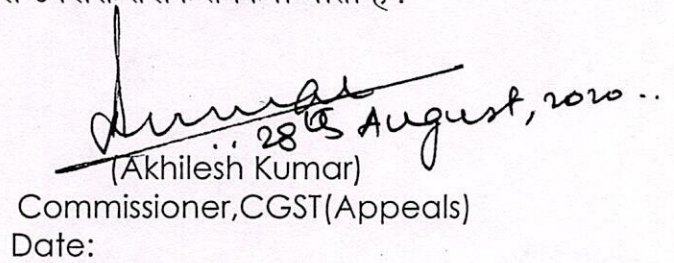 28th August, 2020..
(Akhilesh Kumar)
Commissioner,CGST(Appeals)
Date: